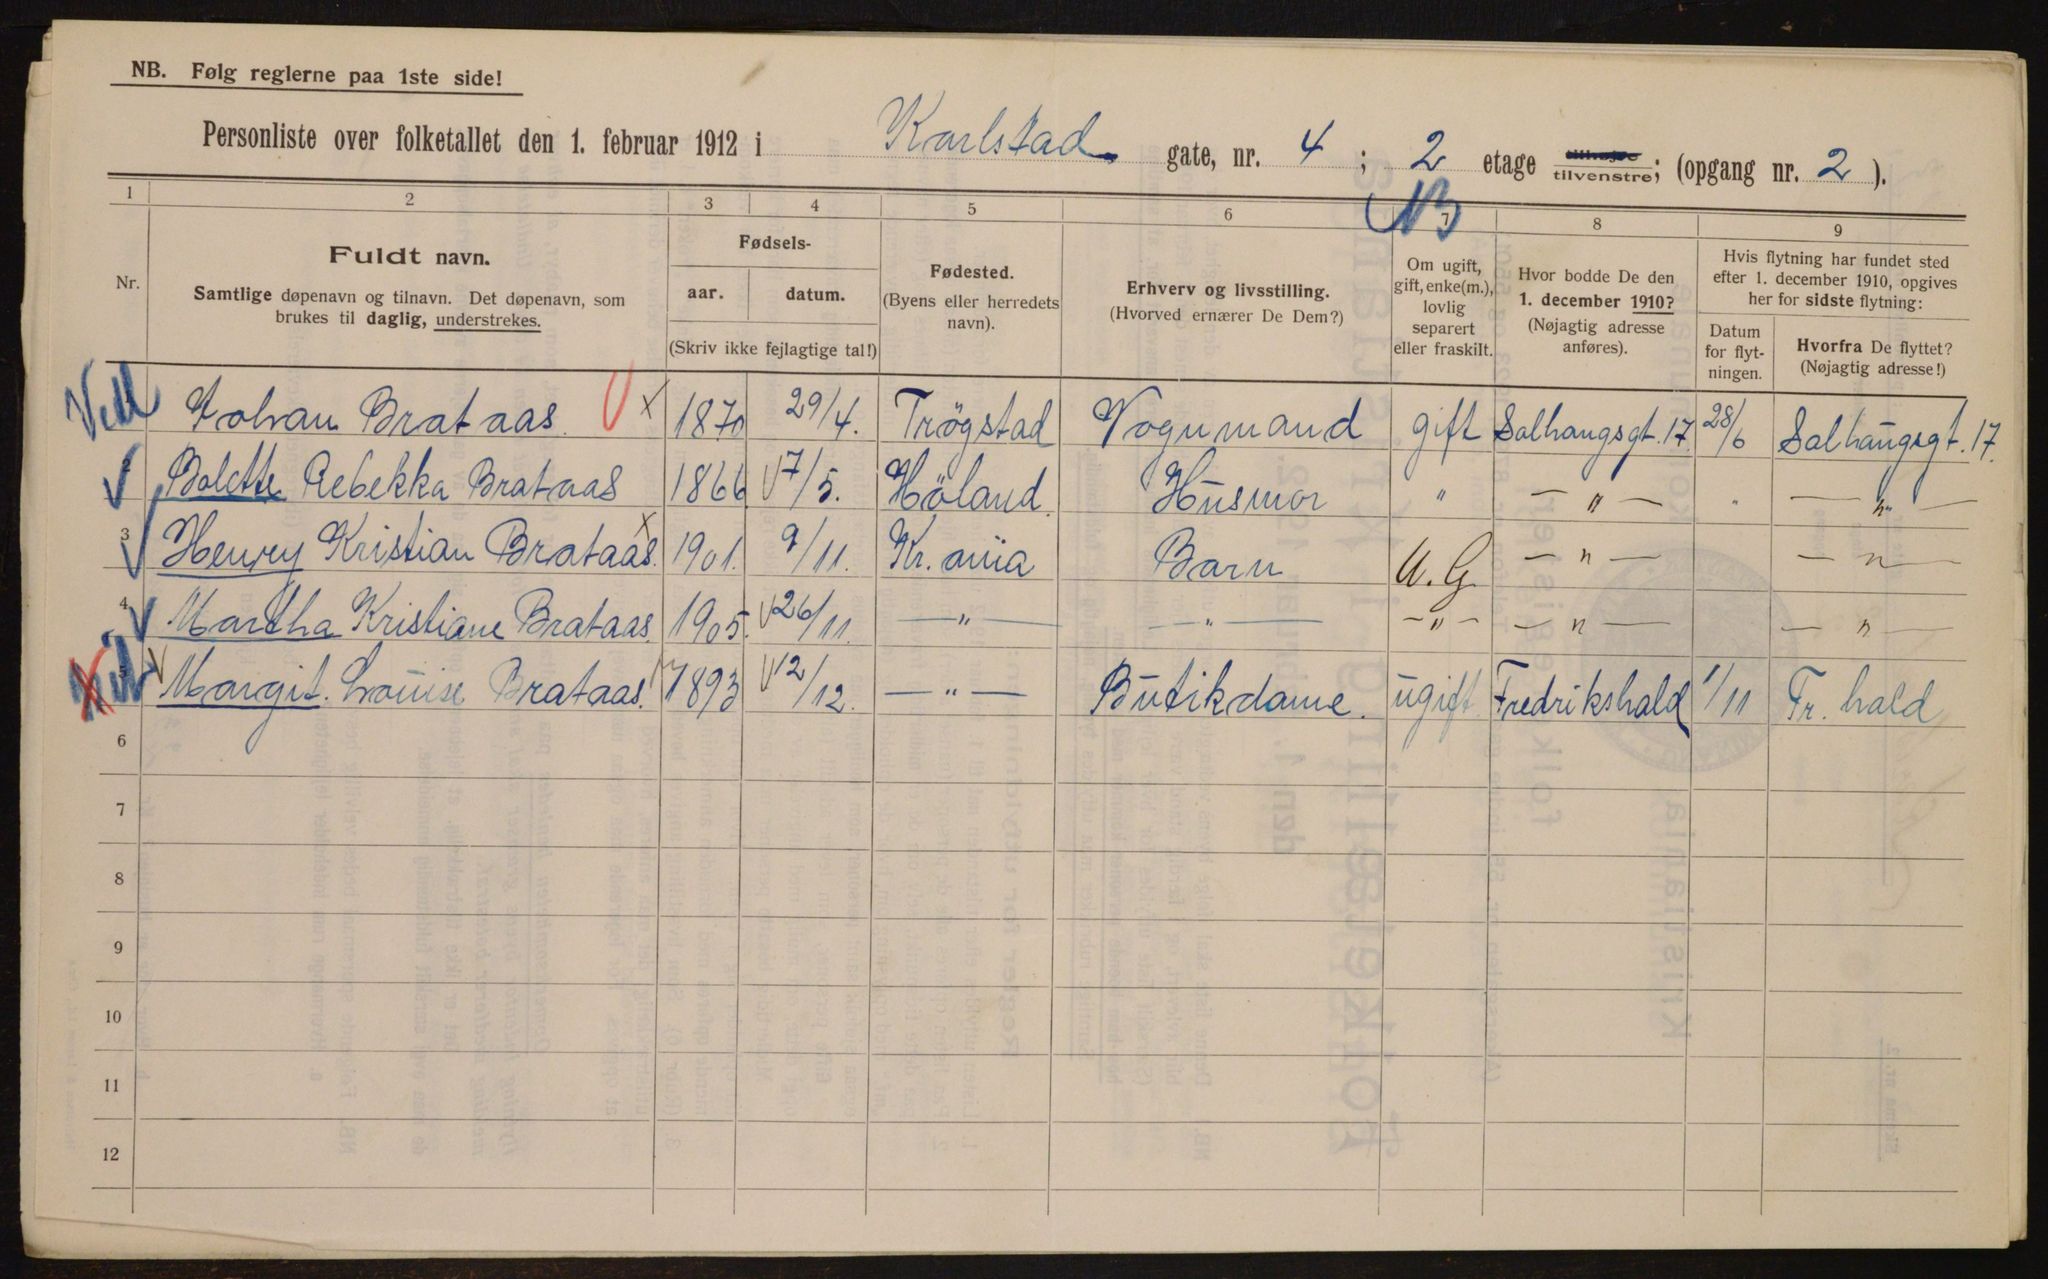 NB. Følg reglerne paa 1ste side!
Personliste over folketallet den 1. februar 1912 i Karlstad gate, nr. 4 ; 2 etage tilhøjre tilvenstre; (opgang nr. 2 ).
NB
1 2 3 4 5 6 7 8 9
Nr.
Fuldt navn.
Samtlige døpenavn og tilnavn. Det døpenavn, som
brukes til daglig, understrekes.
Fødsels-
aar. datum.
(Skriv ikke fejlagtige tal!)
Fødested.
(Byens eller herredets
navn).
Erhverv og livsstilling.
(Hvorved ernærer De Dem?)
Om ugift,
gift, enke(m.),
lovlig
separert
eller fraskilt.
Hvor bodde De den
1. december 1910?
(Nøjagtig adresse
anføres).
Hvis flytning har fundet sted
efter 1. december 1910, opgives
her for sidste flytning:
Datum
for flyt-
ningen.
Hvorfra De flyttet?
(Nøjagtig adresse!)
Johan Brataas x 1870 29/4. Trøgstad Vognmand gift Solhaugsgt. 17 28/6 Solhaugsgt. 17.
2 Bolette Rebekka Brataas 1866 7/5. Höland. Husmor " — " — " — " —
3 Henry Kristian Brataas. x 1901. 9/11. Kr. ania Barn U.G — " — — " —
4 Martha Kristiane Brataas. 1905. 26/11. — " — — " — — " — — " — — " —
5 Margit Louise Brataas. 1893 2/12. — " — Butikdame. ugift Fredrikshald 1/11 Fr. hald
6
7
8
9
10
11
12